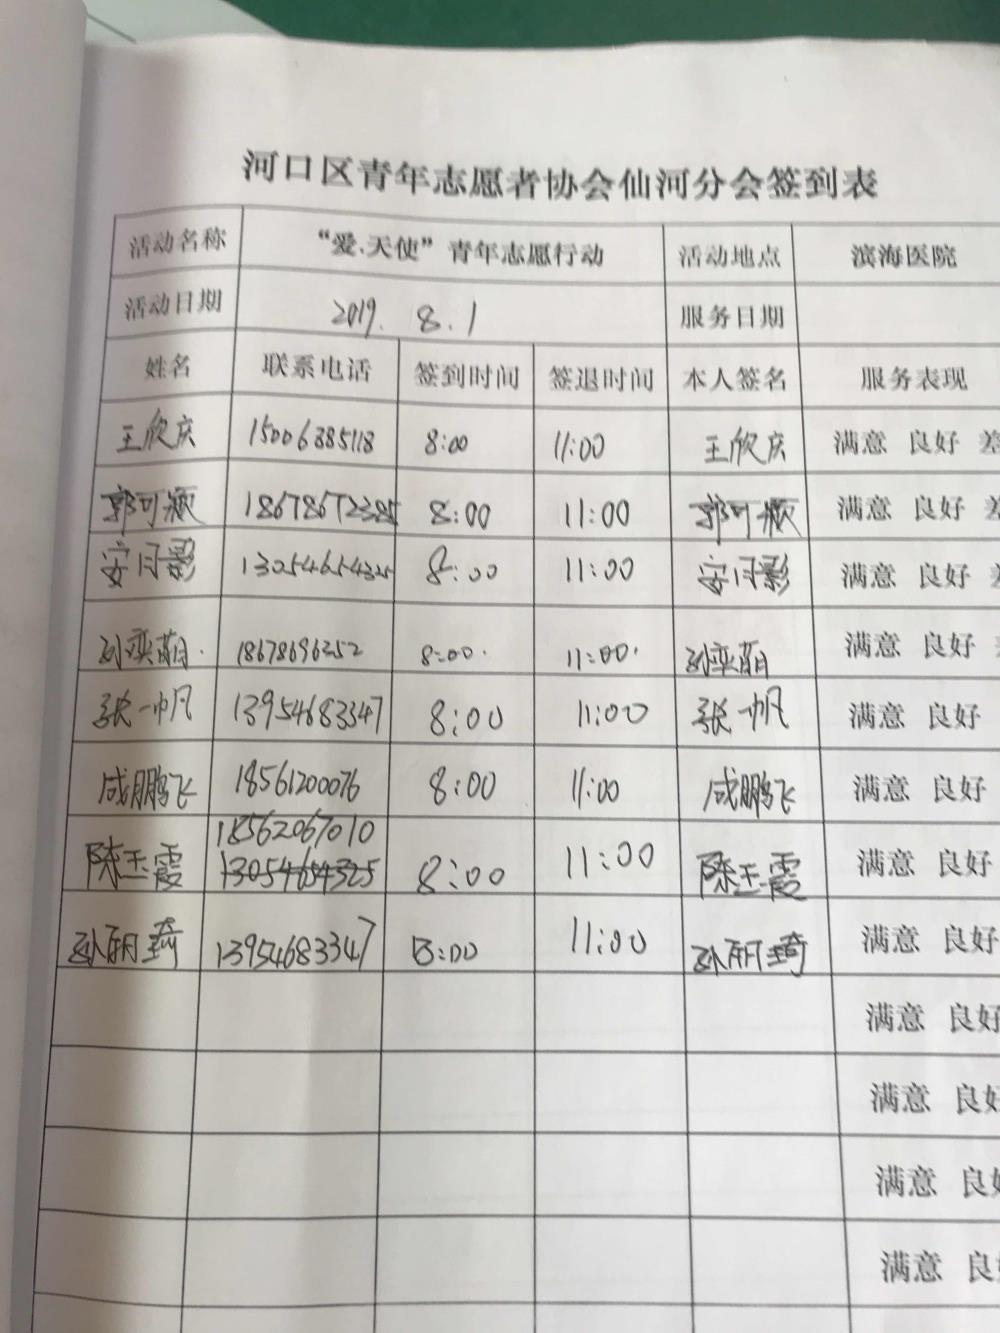 河口区青年志愿者协会仙河分会签到表
活动名称 “爱.天使”青年志愿行动 活动地点 滨海医院
活动日期 2019. 8.1 服务日期
姓名 联系电话 签到时间 签退时间 本人签名 服务表现
王欣庆 15006385118 8:00 11:00 王欣庆 满意 良好 差
郭可颖 18678672385 8:00 11:00 郭可颖 满意 良好 差
安月影 13054654325 8:00 11:00 安月影 满意 良好
孙奕萌 18678696352 8:00 11:00 孙奕萌 满意 良好
张一帆 13954683347 8:00 11:00 张一帆 满意 良好
成鹏飞 18561200076 8:00 11:00 成鹏飞 满意 良好
18562067010
陈玉霞 13054654325 8:00 11:00 陈玉霞 满意 良好
孙玥琦 13954683347 8:00 11:00 孙玥琦 满意 良好
满意 良好
满意 良好
满意 良好
满意 良